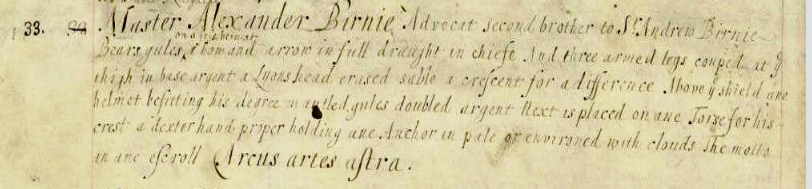 33. Master Alexander Birnie Advocat second brother to Sr. Andrew Birnie
on a fess betwixt
Bears gules, a bow and arrow in full draught in chiefe And three armed legs couped at ye
thigh in base argent a Lyons head erased sable a crescent for a difference Above ye shield ane
helmet befitting his degree mantled gules doubled argent Next is placed on ane Torse for his
crest a dexter hand proper holding ane Anchor in pale or environed with clouds The motto
in ane escroll Arcus artes astra.